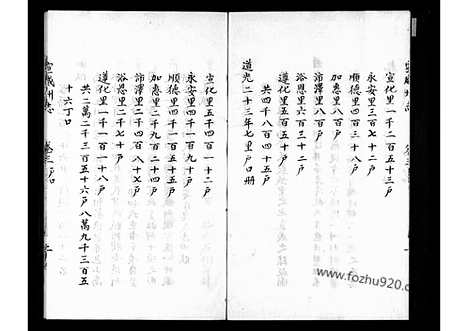 宣化里一千二百五十三戶
永安里三千八百一十二戶
順德里四百三十八戶
加惠里八百戶
沛澤里八百戶
浴恩里六百三十二戶
遵化里五百五十五戶
共四千八百四十五戶
道光二十三年七里戶口冊
宣化里五千四百一十二戶
永安里四千一百七十戶
順德里四千一百五十五戶
加惠里二千九百二十四戶
沛澤里二千四百八十七戶
浴恩里二千七十戶
遵化里一千一百三十八戶
共二萬二千三百五十六戶八萬九千三百五
十六丁口
卷三 戶口
www.fozhu920.com